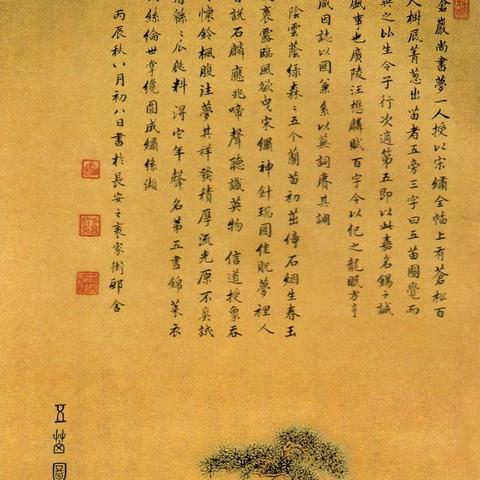 巖尚書夢一人授以宋繡全幅上有蒼松百
樹底菁蔥出苗者五旁三字曰五苗圖覺而
異之以生令子行次適第五即以此嘉名錫予誠
盛事也廣陵汪懋麟賦百字令以紀之龍眠方亨
咸因誌以圖兼系以蕪詞賡其調
陰雲蔭綠森〻五个蘭苗初茁倚石烟生春玉
裛露臨風欲曳宋繡神針瑞圖佳貺夢裡人
說石麟應兆啼聲聽識英物 信道授象吞
懷鈴楓腹注夢其祥發積厚流光原不爽試
看緜〻瓜瓞料得它年聲名第五晝錦萊衣
絲綸世掌纔圓成繡絲纈
丙辰秋八月初八日書於長安之裹家街邸舍
五苗圖